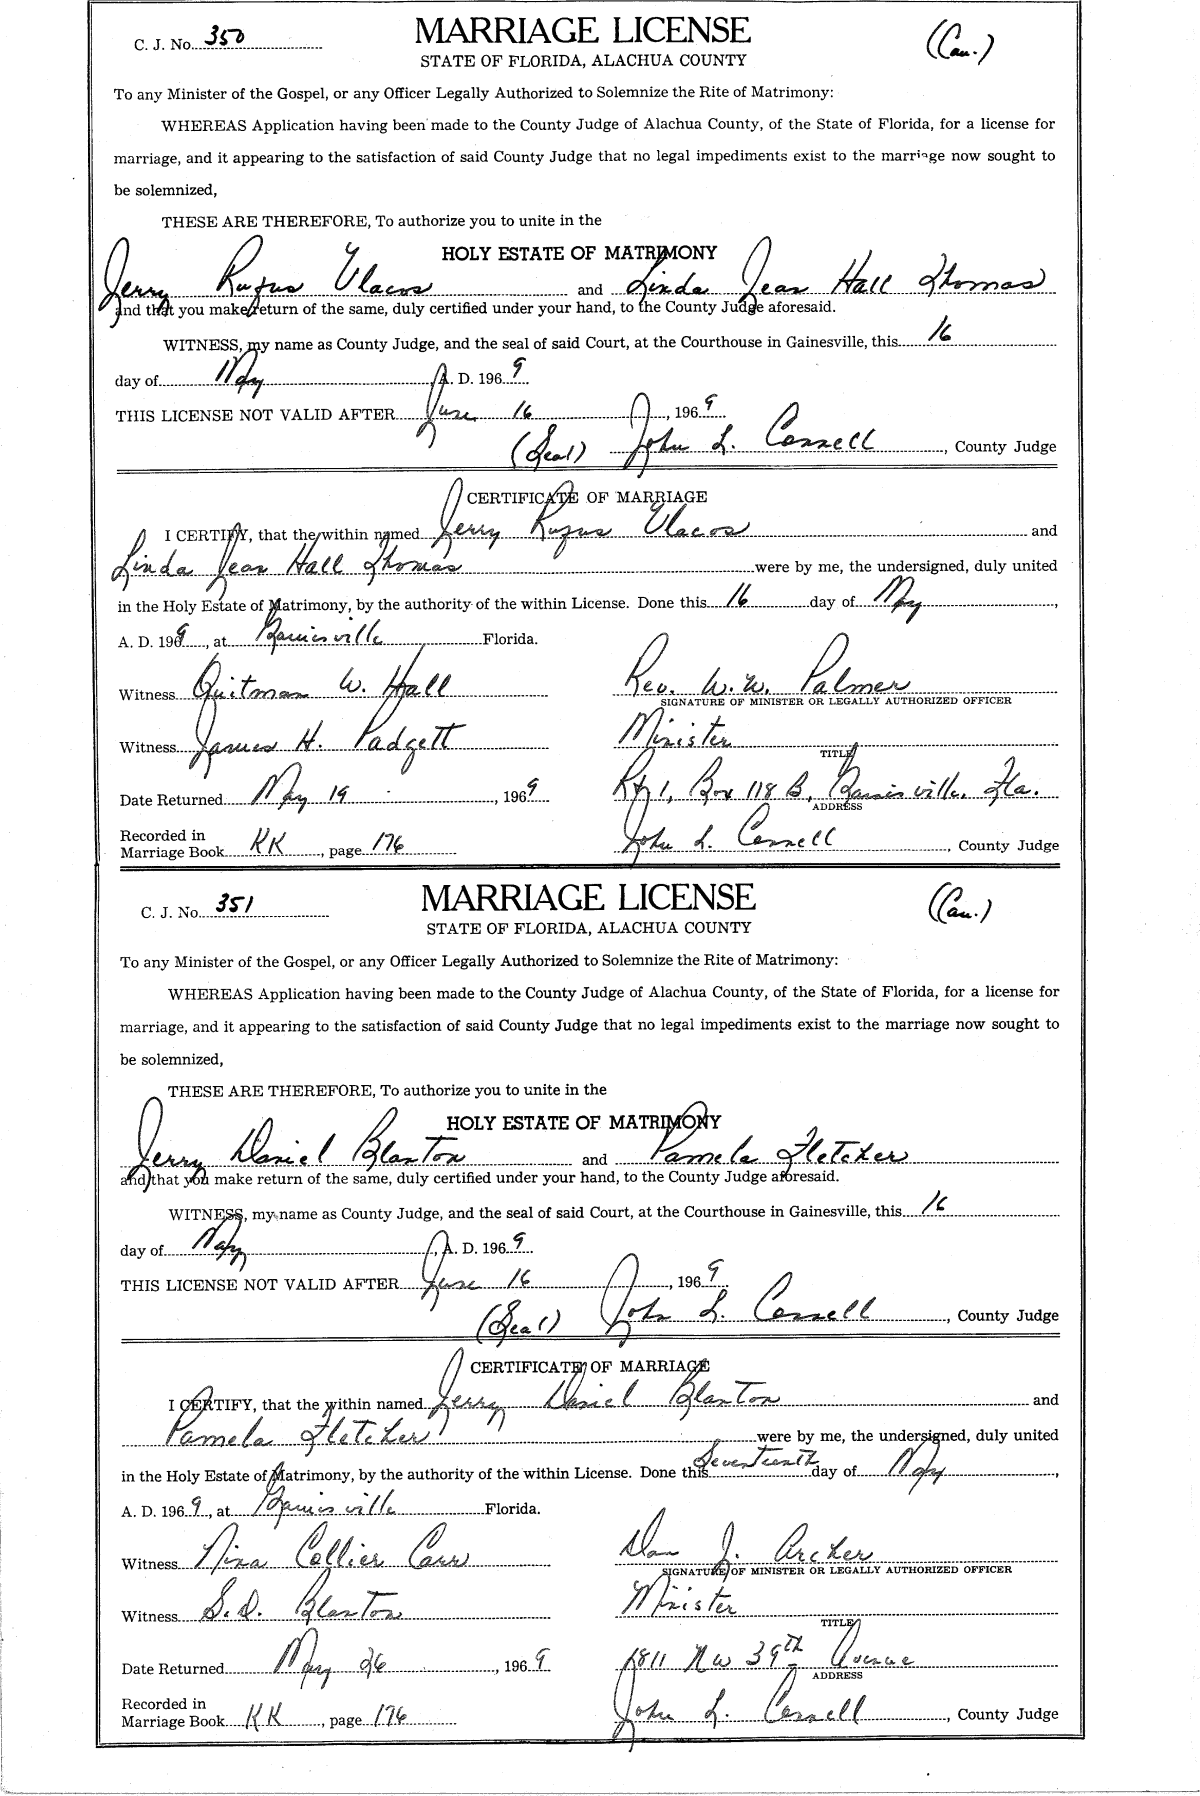 C. J. No. 350
MARRIAGE LICENSE
(Cau.)
STATE OF FLORIDA, ALACHUA COUNTY
To any Minister of the Gospel, or any Officer Legally Authorized to Solemnize the Rite of Matrimony:
WHEREAS Application having been made to the County Judge of Alachua County, of the State of Florida, for a license for
marriage, and it appearing to the satisfaction of said County Judge that no legal impediments exist to the marriage now sought to
be solemnized,
THESE ARE THEREFORE, To authorize you to unite in the
HOLY ESTATE OF MATRIMONY
Jerry Rufus Vlacos and Linda Jean Hall Thomas
and that you make return of the same, duly certified under your hand, to the County Judge aforesaid.
WITNESS, my name as County Judge, and the seal of said Court, at the Courthouse in Gainesville, this 16
day of May A. D. 1969
THIS LICENSE NOT VALID AFTER June 16, 1969
(Seal) John L. Connell, County Judge
CERTIFICATE OF MARRIAGE
I CERTIFY, that the within named Jerry Rufus Vlacos and
Linda Jean Hall Thomas were by me, the undersigned, duly united
in the Holy Estate of Matrimony, by the authority of the within License. Done this 16 day of May,
A. D. 1969, at Gainesville Florida.
Witness Quitman W. Hall Rev. W. W. Palmer
SIGNATURE OF MINISTER OR LEGALLY AUTHORIZED OFFICER
Witness James H. Padgett Minister
TITLE
Date Returned May 19, 1969 Rt 1, Box 118 B, Gainesville, Fla.
ADDRESS
Recorded in
Marriage Book KK, page 176 John L. Connell, County Judge
C. J. No. 351
MARRIAGE LICENSE
(Cau.)
STATE OF FLORIDA, ALACHUA COUNTY
To any Minister of the Gospel, or any Officer Legally Authorized to Solemnize the Rite of Matrimony:
WHEREAS Application having been made to the County Judge of Alachua County, of the State of Florida, for a license for
marriage, and it appearing to the satisfaction of said County Judge that no legal impediments exist to the marriage now sought to
be solemnized,
THESE ARE THEREFORE, To authorize you to unite in the
HOLY ESTATE OF MATRIMONY
Jerry Daniel Blanton and Pamela Fletcher
and that you make return of the same, duly certified under your hand, to the County Judge aforesaid.
WITNESS, my name as County Judge, and the seal of said Court, at the Courthouse in Gainesville, this 16
day of May, A. D. 1969
THIS LICENSE NOT VALID AFTER June 16, 1969
(Seal) John L. Connell, County Judge
CERTIFICATE OF MARRIAGE
I CERTIFY, that the within named Jerry Daniel Blanton and
Pamela Fletcher were by me, the undersigned, duly united
in the Holy Estate of Matrimony, by the authority of the within License. Done this Seventeenth day of May,
A. D. 1969, at Gainesville Florida.
Witness Nina Collier Carr Dan J. Archer
SIGNATURE OF MINISTER OR LEGALLY AUTHORIZED OFFICER
Witness S. D. Blanton Minister
TITLE
Date Returned May 26, 1969 1811 NW 39th Avenue
ADDRESS
Recorded in
Marriage Book KK, page 176 John L. Connell, County Judge